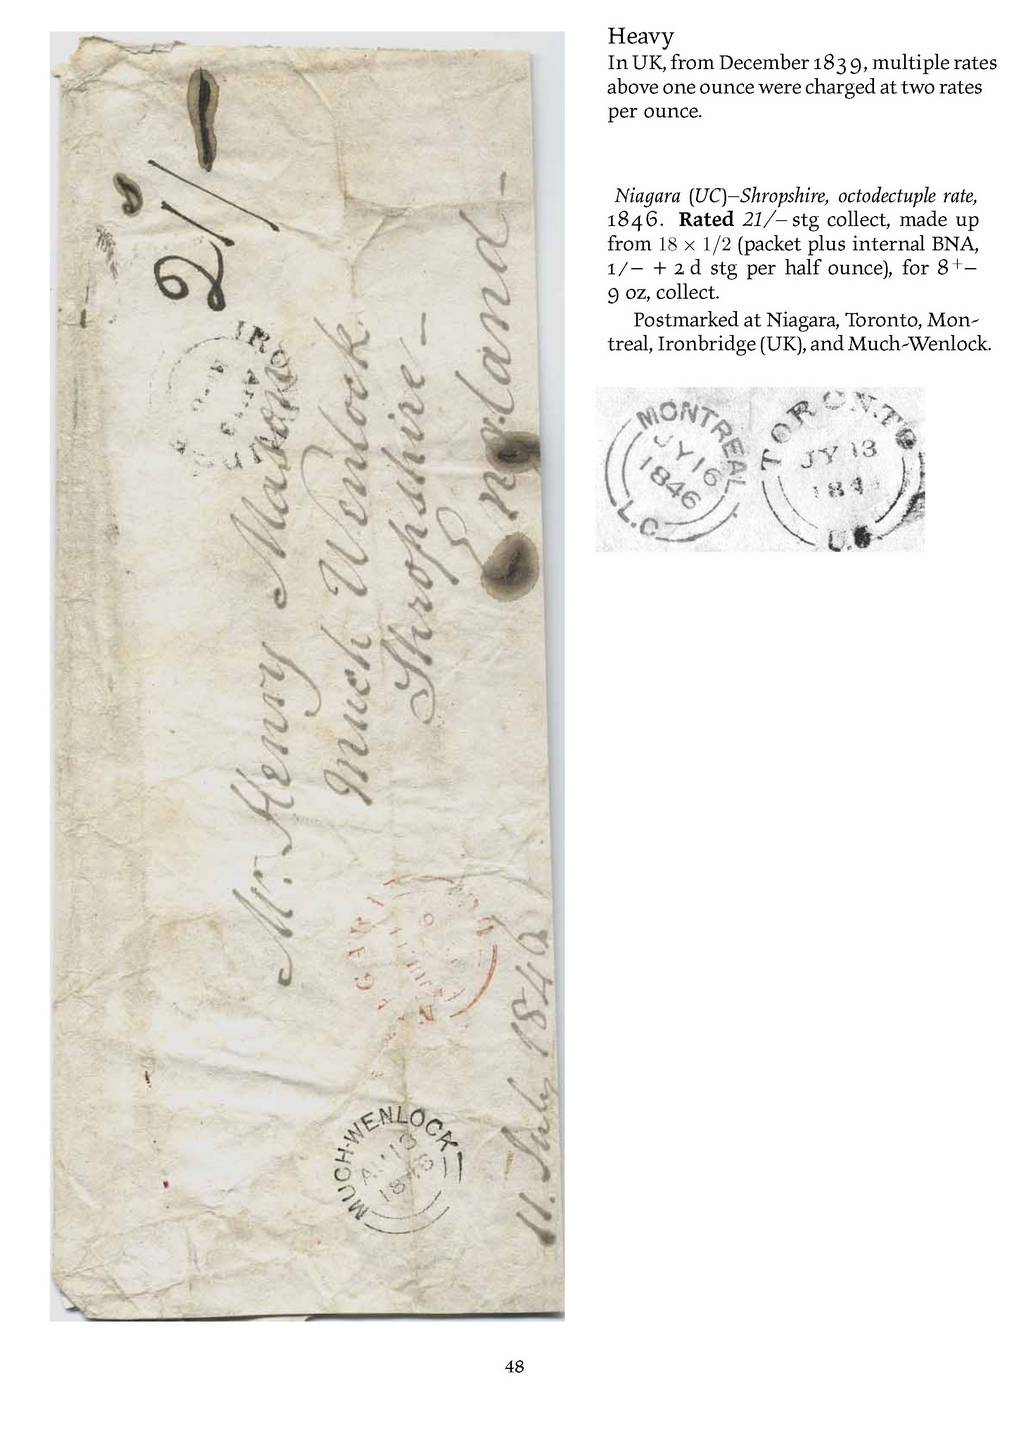 Heavy
In UK, from December 1839, multiple rates
above one ounce were charged at two rates
per ounce.
Niagara (UC)–Shropshire, octodectuple rate,
1846. Rated 21/– stg collect, made up
from 18 × 1/2 (packet plus internal BNA,
1/– + 2 d stg per half ounce), for 8+–
9 oz, collect.
Postmarked at Niagara, Toronto, Mon-
treal, Ironbridge (UK), and Much-Wenlock.
MONTREAL
JY 16
1846
L.C.
TORONTO
JY 13
184
U.C.
21/–
IRO
Mr. Henry Mason
Much Wenlock
Shropshire–
England–
MUCH-WENLOCK
AU 13
1846
11. July 1846
48